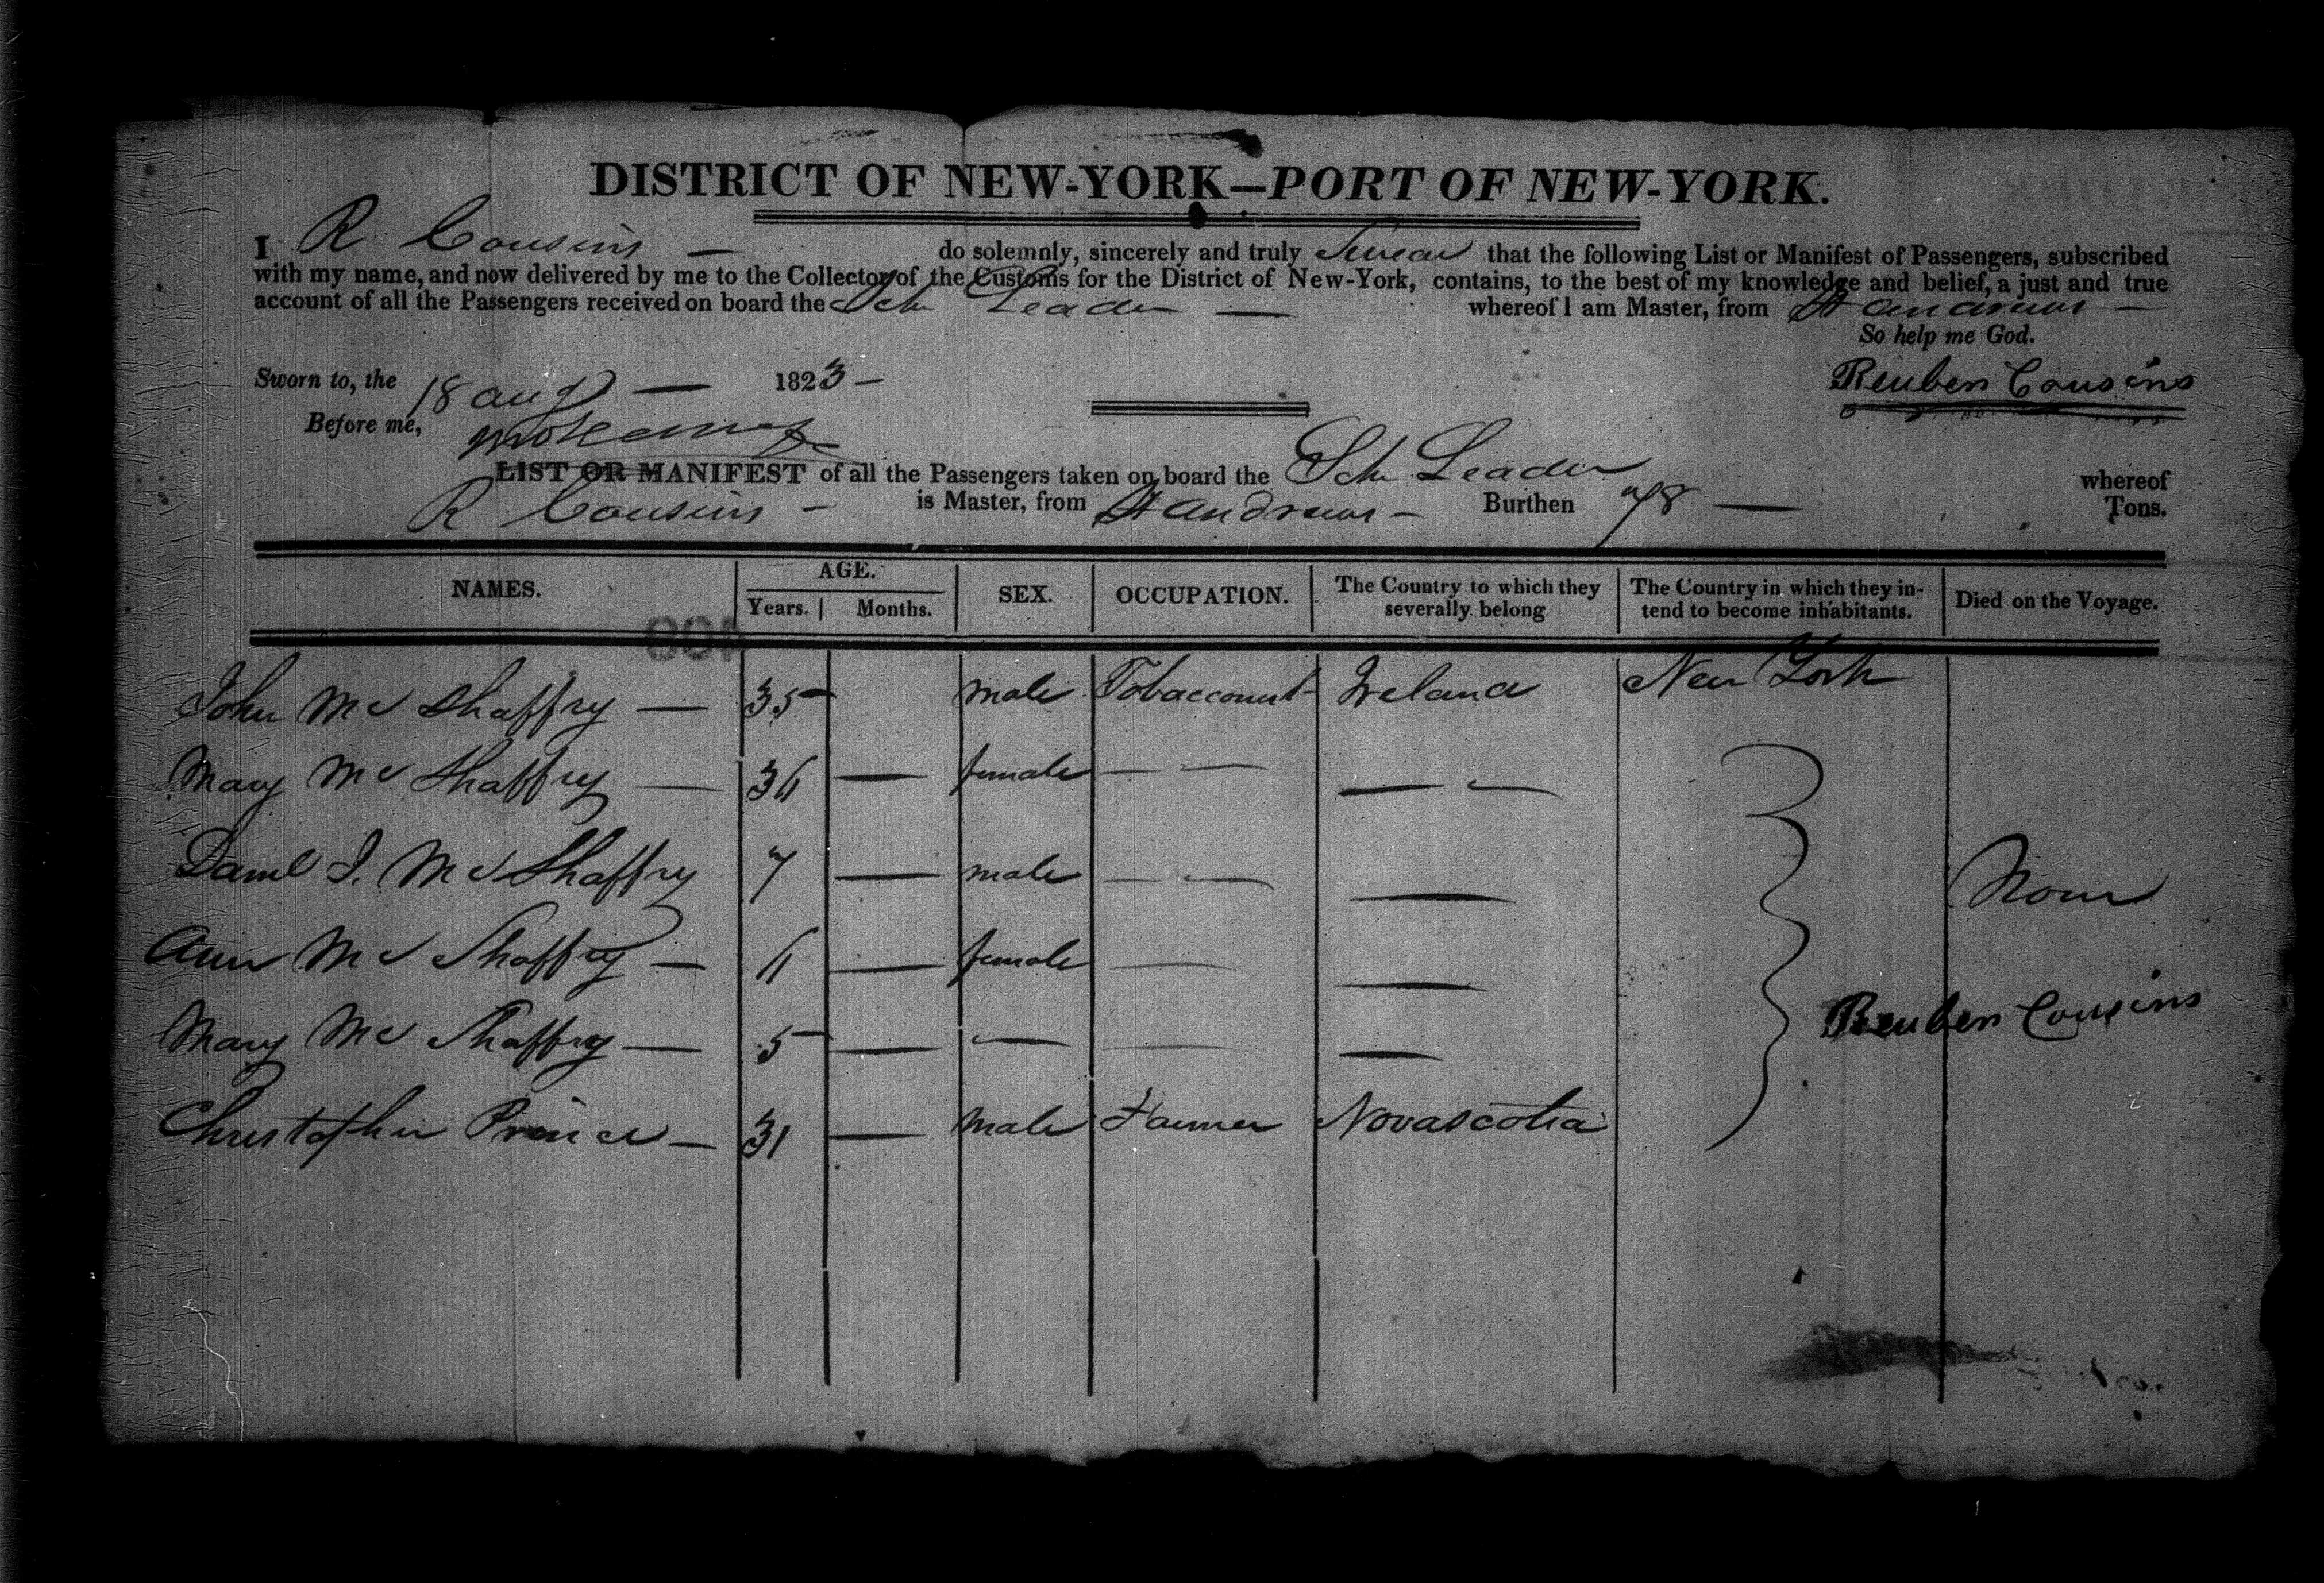 DISTRICT OF NEW-YORK—PORT OF NEW-YORK.
I R Cousins — do solemnly, sincerely and truly Swear that the following List or Manifest of Passengers, subscribed
with my name, and now delivered by me to the Collector of the Customs for the District of New-York, contains, to the best of my knowledge and belief, a just and true
account of all the Passengers received on board the Sch Leader — whereof I am Master, from St Andrews —
So help me God.
Sworn to, the 18 Aug — 1823 —
Reuben Cousins
Before me,
LIST OR MANIFEST of all the Passengers taken on board the Sch Leader whereof
R Cousins — is Master, from St Andrews — Burthen 78 — Tons.
NAMES. AGE. SEX. OCCUPATION. The Country to which they severally belong The Country in which they intend to become inhabitants. Died on the Voyage.
Years. Months.
John Mc Shaffry — 35 male Tobacconist Ireland New York
Mary Mc Shaffry — 36 — female — — — —
Danl I. Mc Shaffry 7 — male — — — None
Ann Mc Shaffry — 6 — female — —
Mary Mc Shaffry — 5 — — — —
Reuben Cousins
Christopher Prince — 31 — male Farmer Novascotia